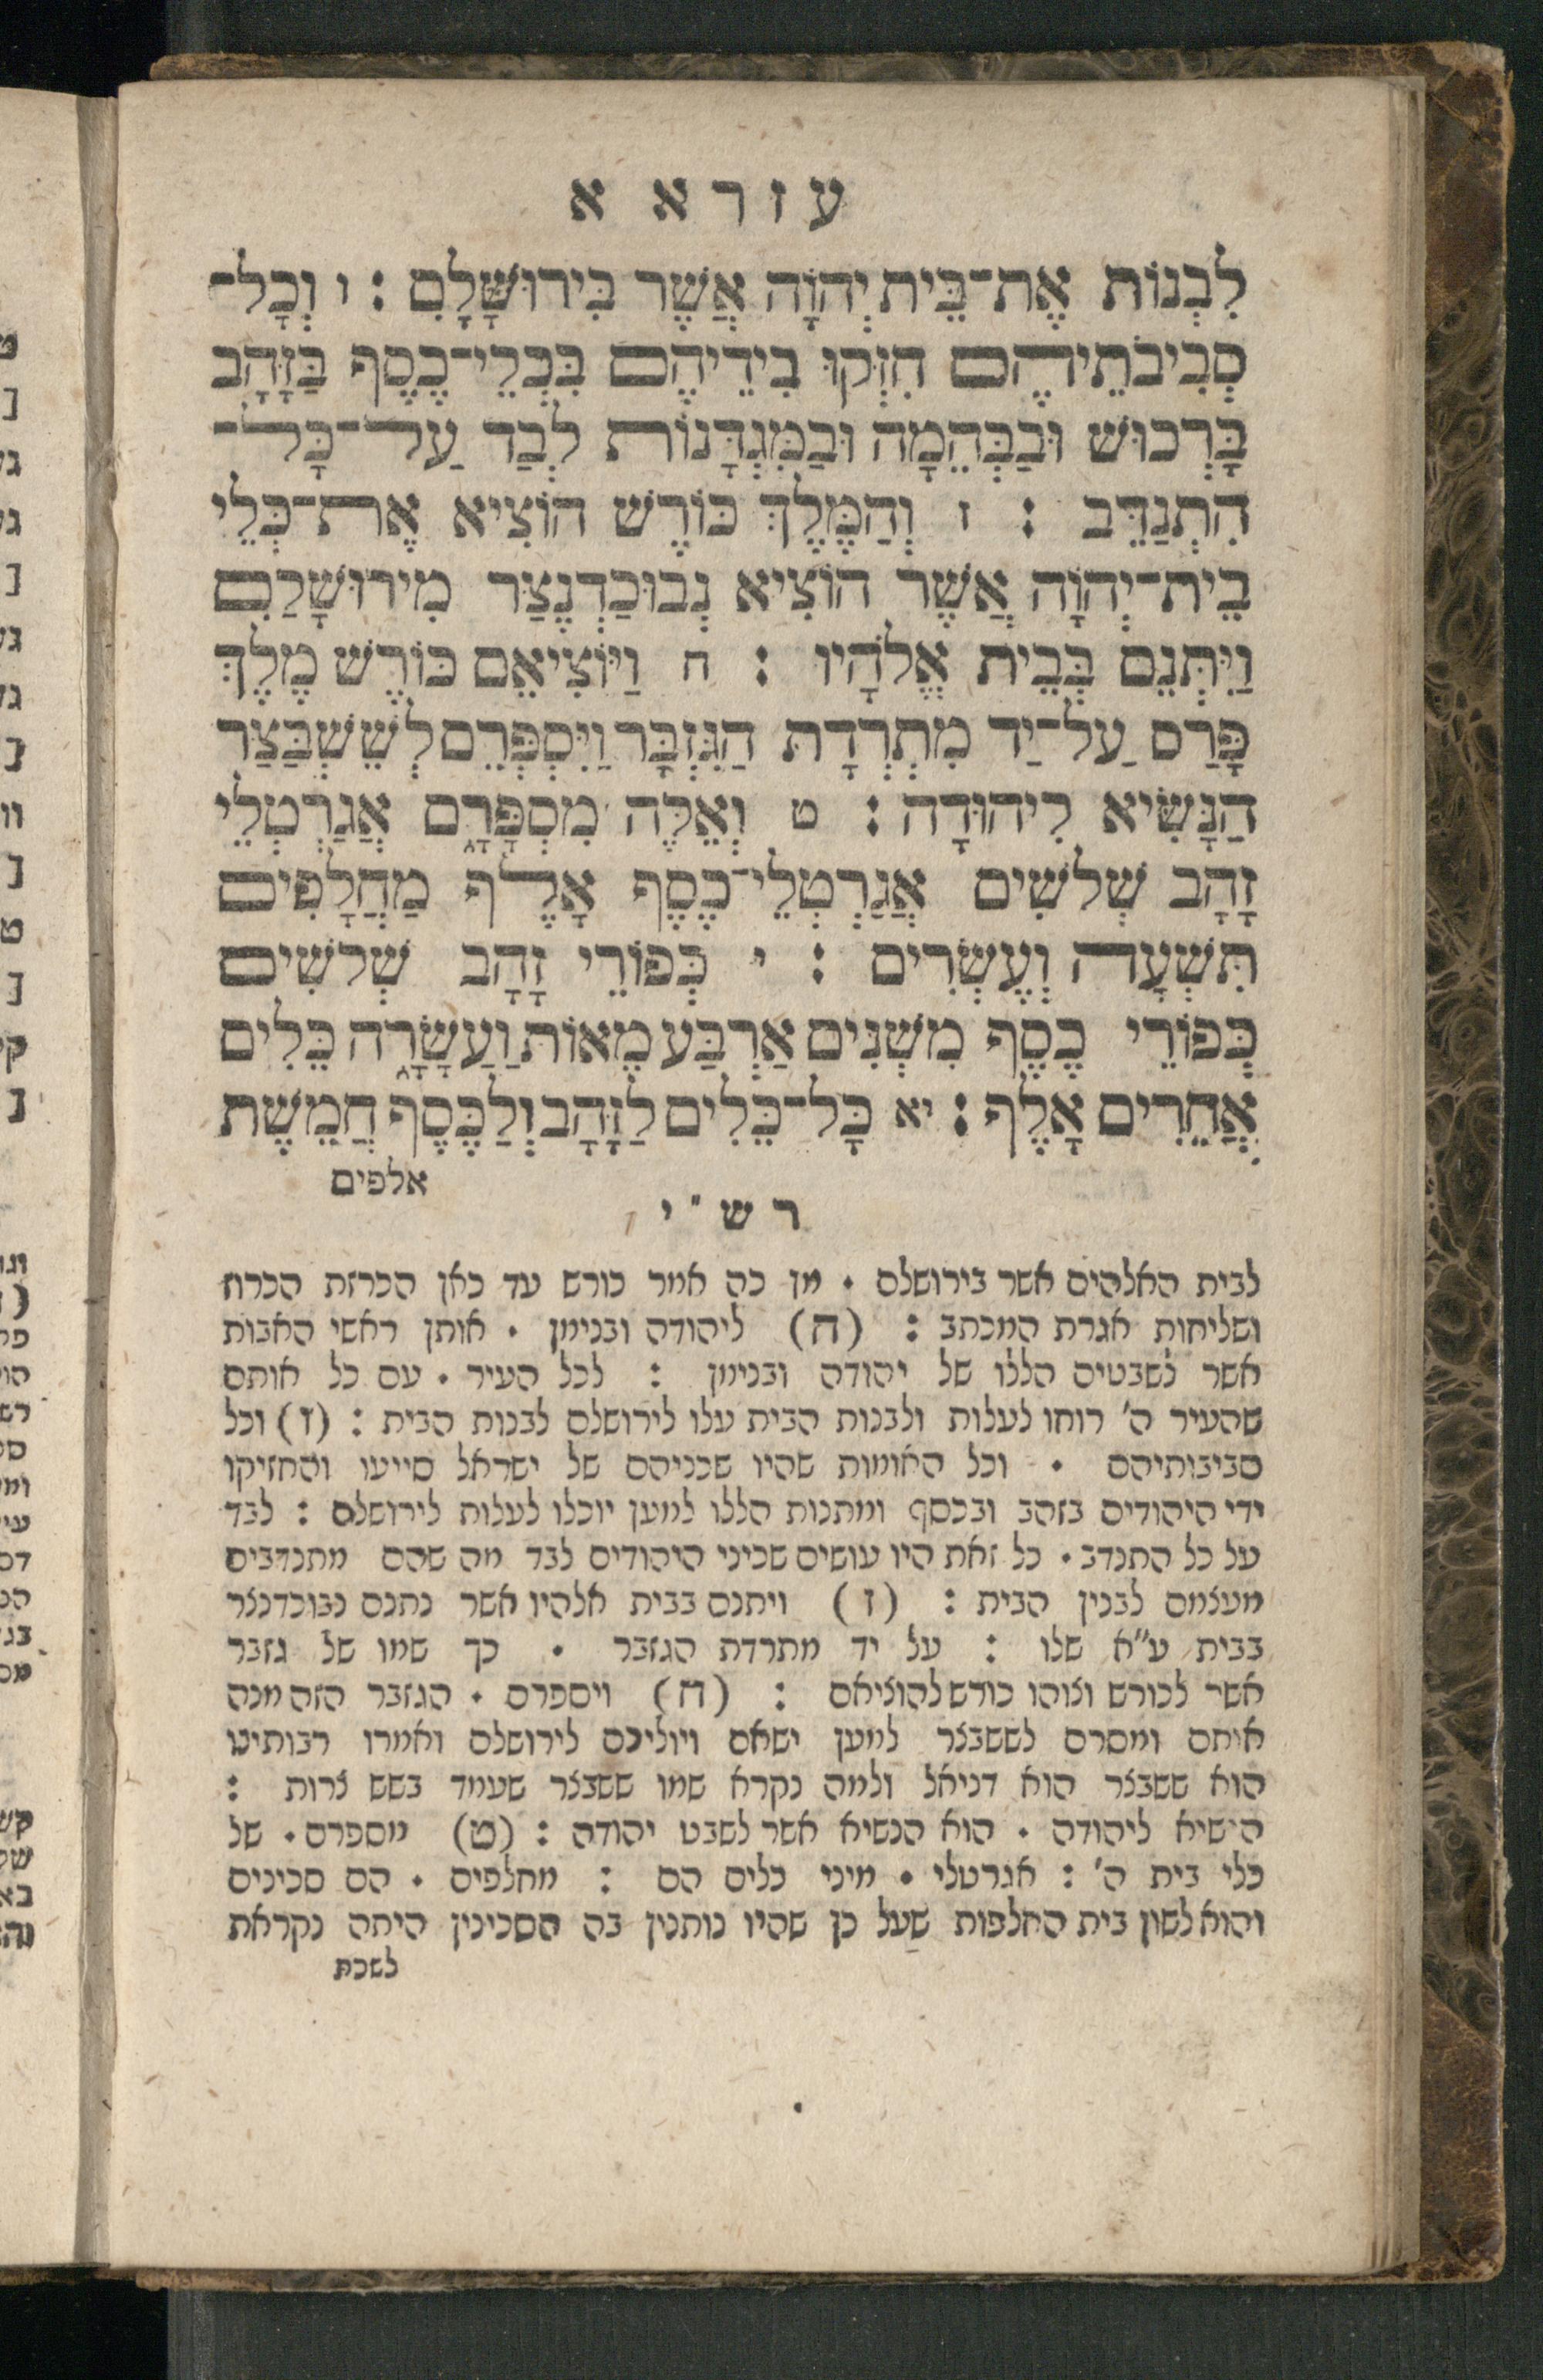 עזרא א
לִבְנוֹת אֶת־בֵּית יְהוָֹה אֲשֶׁר בִּירוּשָׁלָםִ : ו וְכָל־
סְבִיבֹתֵיהֶם חִזְּקוּ בִידֵיהֶם בִּכְלֵי־כֶסֶף בַּזָּהָב
בָּרְכוּשׁ וּבַבְּהֵמָה וּבַמִּגְדָּנוֹת לְבַד עַל־כָּל־
הִתְנַדֵּב : ז וְהַמֶּלֶךְ כּוֹרֶשׁ הוֹצִיא אֶת־כְּלֵי
בֵית־יְהוָֹה אֲשֶׁר הוֹצִיא נְבוּכַדְנֶצַּר מִירוּשָׁלַםִ
וַיִּתְּנֵם בְּבֵית אֱלֹהָיו : ח וַיּוֹצִיאֵם כּוֹרֶשׁ מֶלֶךְ
פָּרַס עַל־יַד מִתְרְדָת הַגִּזְבָּר וַיִּסְפְּרֵם לְשֵׁשְׁבַּצַּר
הַנָּשִׂיא לִיהוּדָה : ט וְאֵלֶּה מִסְפָּרָם אֲגַרְטְלֵי
זָהָב שְׁלשִׁים אֲגַרְטְלֵי־כֶסֶף אָלֶף מַחֲלָפִים
תִּשְׁעָה וְעֶשְׂרִים : י כְּפוֹרֵי זָהָב שְׁלשִׁים
כְּפוֹרֵי כֶסֶף מִשְׁנִים אַרְבַּע מֵאוֹת וַעֲשָׂרָה כֵּלִים
אֲחֵרִים אָלֶף : יא כָּל־כֵּלִים לַזָּהָב וְלַכֶּסֶף חֲמֵשֶׁת
אלפים
רש״י
לבית האלהים אשר בירושלם . מן כה אמר כורש עד כאן הכרזת הכרוז
ושליחות אגרת המכתב : (ה) ליהודה ובנימן . אותן ראשי האבות
אשר לשבטים הללו של יהודה ובנימן : לכל העיר . עם כל אותם
שהעיר ה' רוחו לעלות ולבנות הבית עלו לירושלם לבנות הבית : (ו) וכל
סביבותיהם . וכל האומות שהיו שכניהם של ישראל סייעו והחזיקו
ידי היהודים בזהב ובכסף ומתנות הללו למען יוכלו לעלות לירושלם : לבד
על כל התנדב . כל זאת היו עושים שכיני היהודים לבד מה שהם מתנדבים
מעצמם לבנין הבית : (ז) ויתנם בבית אלהיו אשר נתנם נבוכדנצר
בבית ע״א שלו : על יד מתרדת הגזבר . כך שמו של גזבר
אשר לכורש וצוהו כורש להוציאם : (ח) ויספרם . הגזבר הזה מנה
אותם ומסרם לששבצר למען ישאם ויוליכם לירושלם ואמרו רבותינו
הוא ששבצר הוא דניאל ולמה נקרא שמו ששבצר שעמד בשש צרות :
הנשיא ליהודה . הוא הנשיא אשר לשבט יהודה : (ט) מספרם . של
כלי בית ה' : אגרטלי . מיני כלים הם : מחלפים . הם סכינים
והוא לשון בית החלפות שעל כן שהיו נותנין בה הסכינין היתה נקראת
לשכת